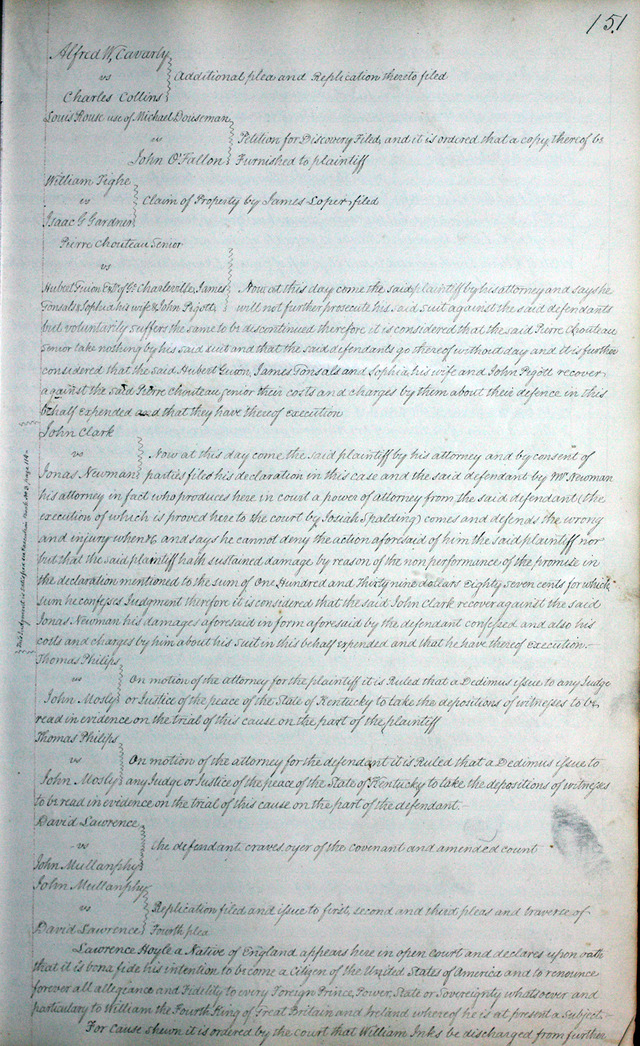 151
Alfred W. Cavarly
vs Additional plea and Replication thereto filed
Charles Collins
Louis Rouse use of Michael Douseman
vs Petition for Discovery Filed, and it is ordered that a copy thereof be
John O'Fallon Furnished to plaintiff
William Tighe
vs Claim of Property by James Loper filed
Isaac G Gardner
Pierre Chouteau Senior
vs
Hubert Guion Exr of Charleville, James Now at this day come the said plaintiff by his attorney and says he
Tonsals & Sophia his wife & John Pigott will not further prosecute his said suit against the said defendants
but voluntarily suffers the same to be discontinued therefore it is considered that the said Pierre Chouteau
Senior take nothing by his said suit and that the said defendants go thereof without day and it is further
considered that the said Hubert Guion, James Tonsals and Sophia his wife and John Pigott recover
against the said Pierre Chouteau Senior their costs and charges by them about their defence in this
behalf expended and that they have thereof execution
John Clark
vs Now at this day come the said plaintiff by his attorney and by consent of
Jonas Newman parties filed his declaration in this case and the said defendant by Mr Newman
his attorney in fact who produces here in court a power of attorney from the said defendant (the
execution of which is proved here to the court by Josiah Spalding) comes and defends the wrong
and injury when &c and says he cannot deny the action aforesaid of him the said plaintiff nor
but that the said plaintiff hath sustained damage by reason of the non performance of the promise in
the declaration mentioned to the sum of One Hundred and Thirty nine dollars Eighty seven cents for which
sum he confesses Judgment therefore it is considered that the said John Clark recover against the said
Jonas Newman his damages aforesaid in form aforesaid by the defendant confessed and also his
costs and charges by him about his suit in this behalf expended and that he have thereof execution.
This Judgment is satisfied on Execution Book page
Thomas Philips
vs On motion of the attorney for the plaintiff it is Ruled that a Dedimus issue to any Judge
John Mosly or Justice of the peace of the State of Kentucky to take the depositions of witnesses to be
read in evidence on the trial of this cause on the part of the plaintiff
Thomas Philips
vs On motion of the attorney for the defendant it is Ruled that a Dedimus issue to
John Mosly any Judge or Justice of the peace of the State of Kentucky to take the depositions of witnesses
to be read in evidence on the trial of this cause on the part of the defendant.
David Lawrence
vs the defendant craves oyer of the covenant and amended count
John Mullanphy
John Mullanphy
vs Replication filed and issue to first, second and third pleas and traverse of
David Lawrence Fourth plea
Lawrence Hoyle a Native of England appears here in open Court and declares upon oath
that it is bona fide his intention to become a Citizen of the United States of America and to renounce
forever all allegiance and Fidelity to every Foreign Prince, Power, State or Sovereignty whatsoever and
particulary to William the Fourth King of Great Britain and Ireland whereof he is at present a Subject.
For Cause shewn it is ordered by the court that William Inks be discharged from further